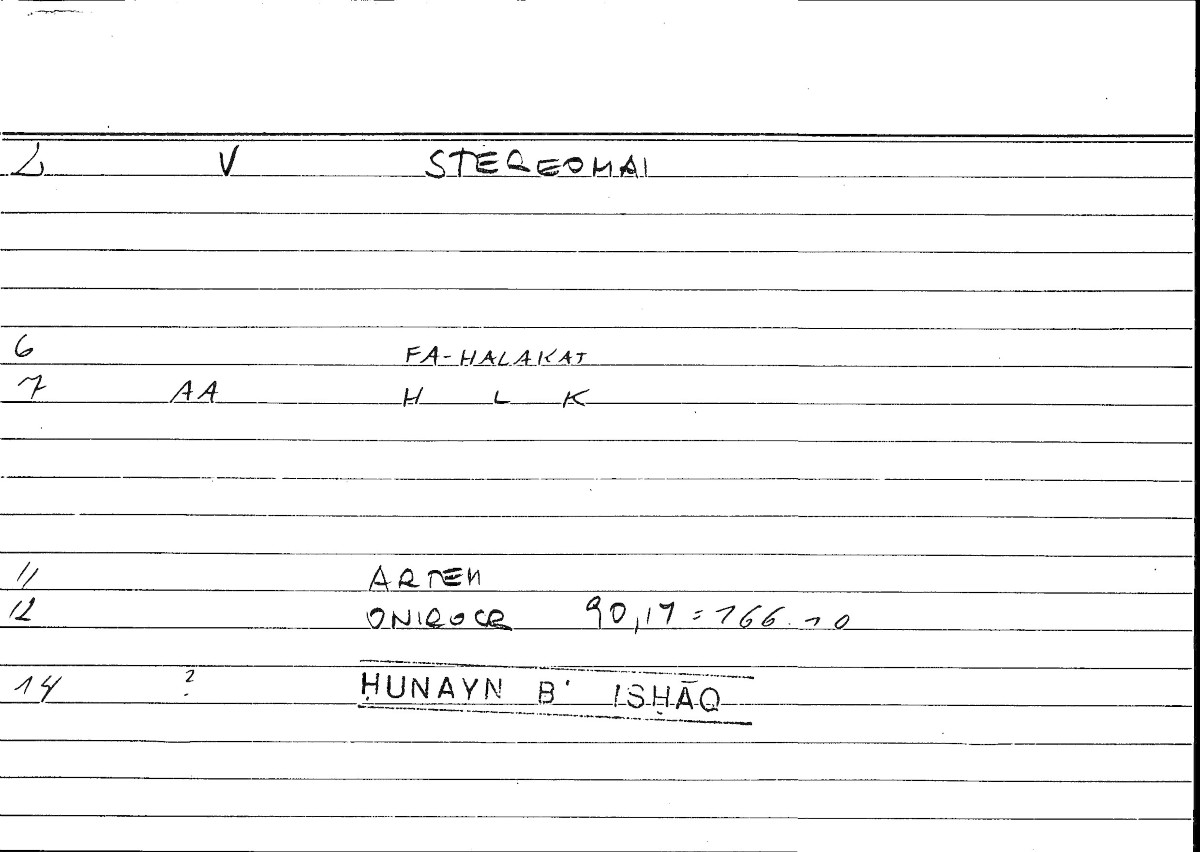 2 V STEREOMAI
6 FA-HALAKAT
7 AA H L K
11 ARTEM
12 ONIROCR 90,17 = 166.10
14 ? ḤUNAYN B' ISḤĀQ